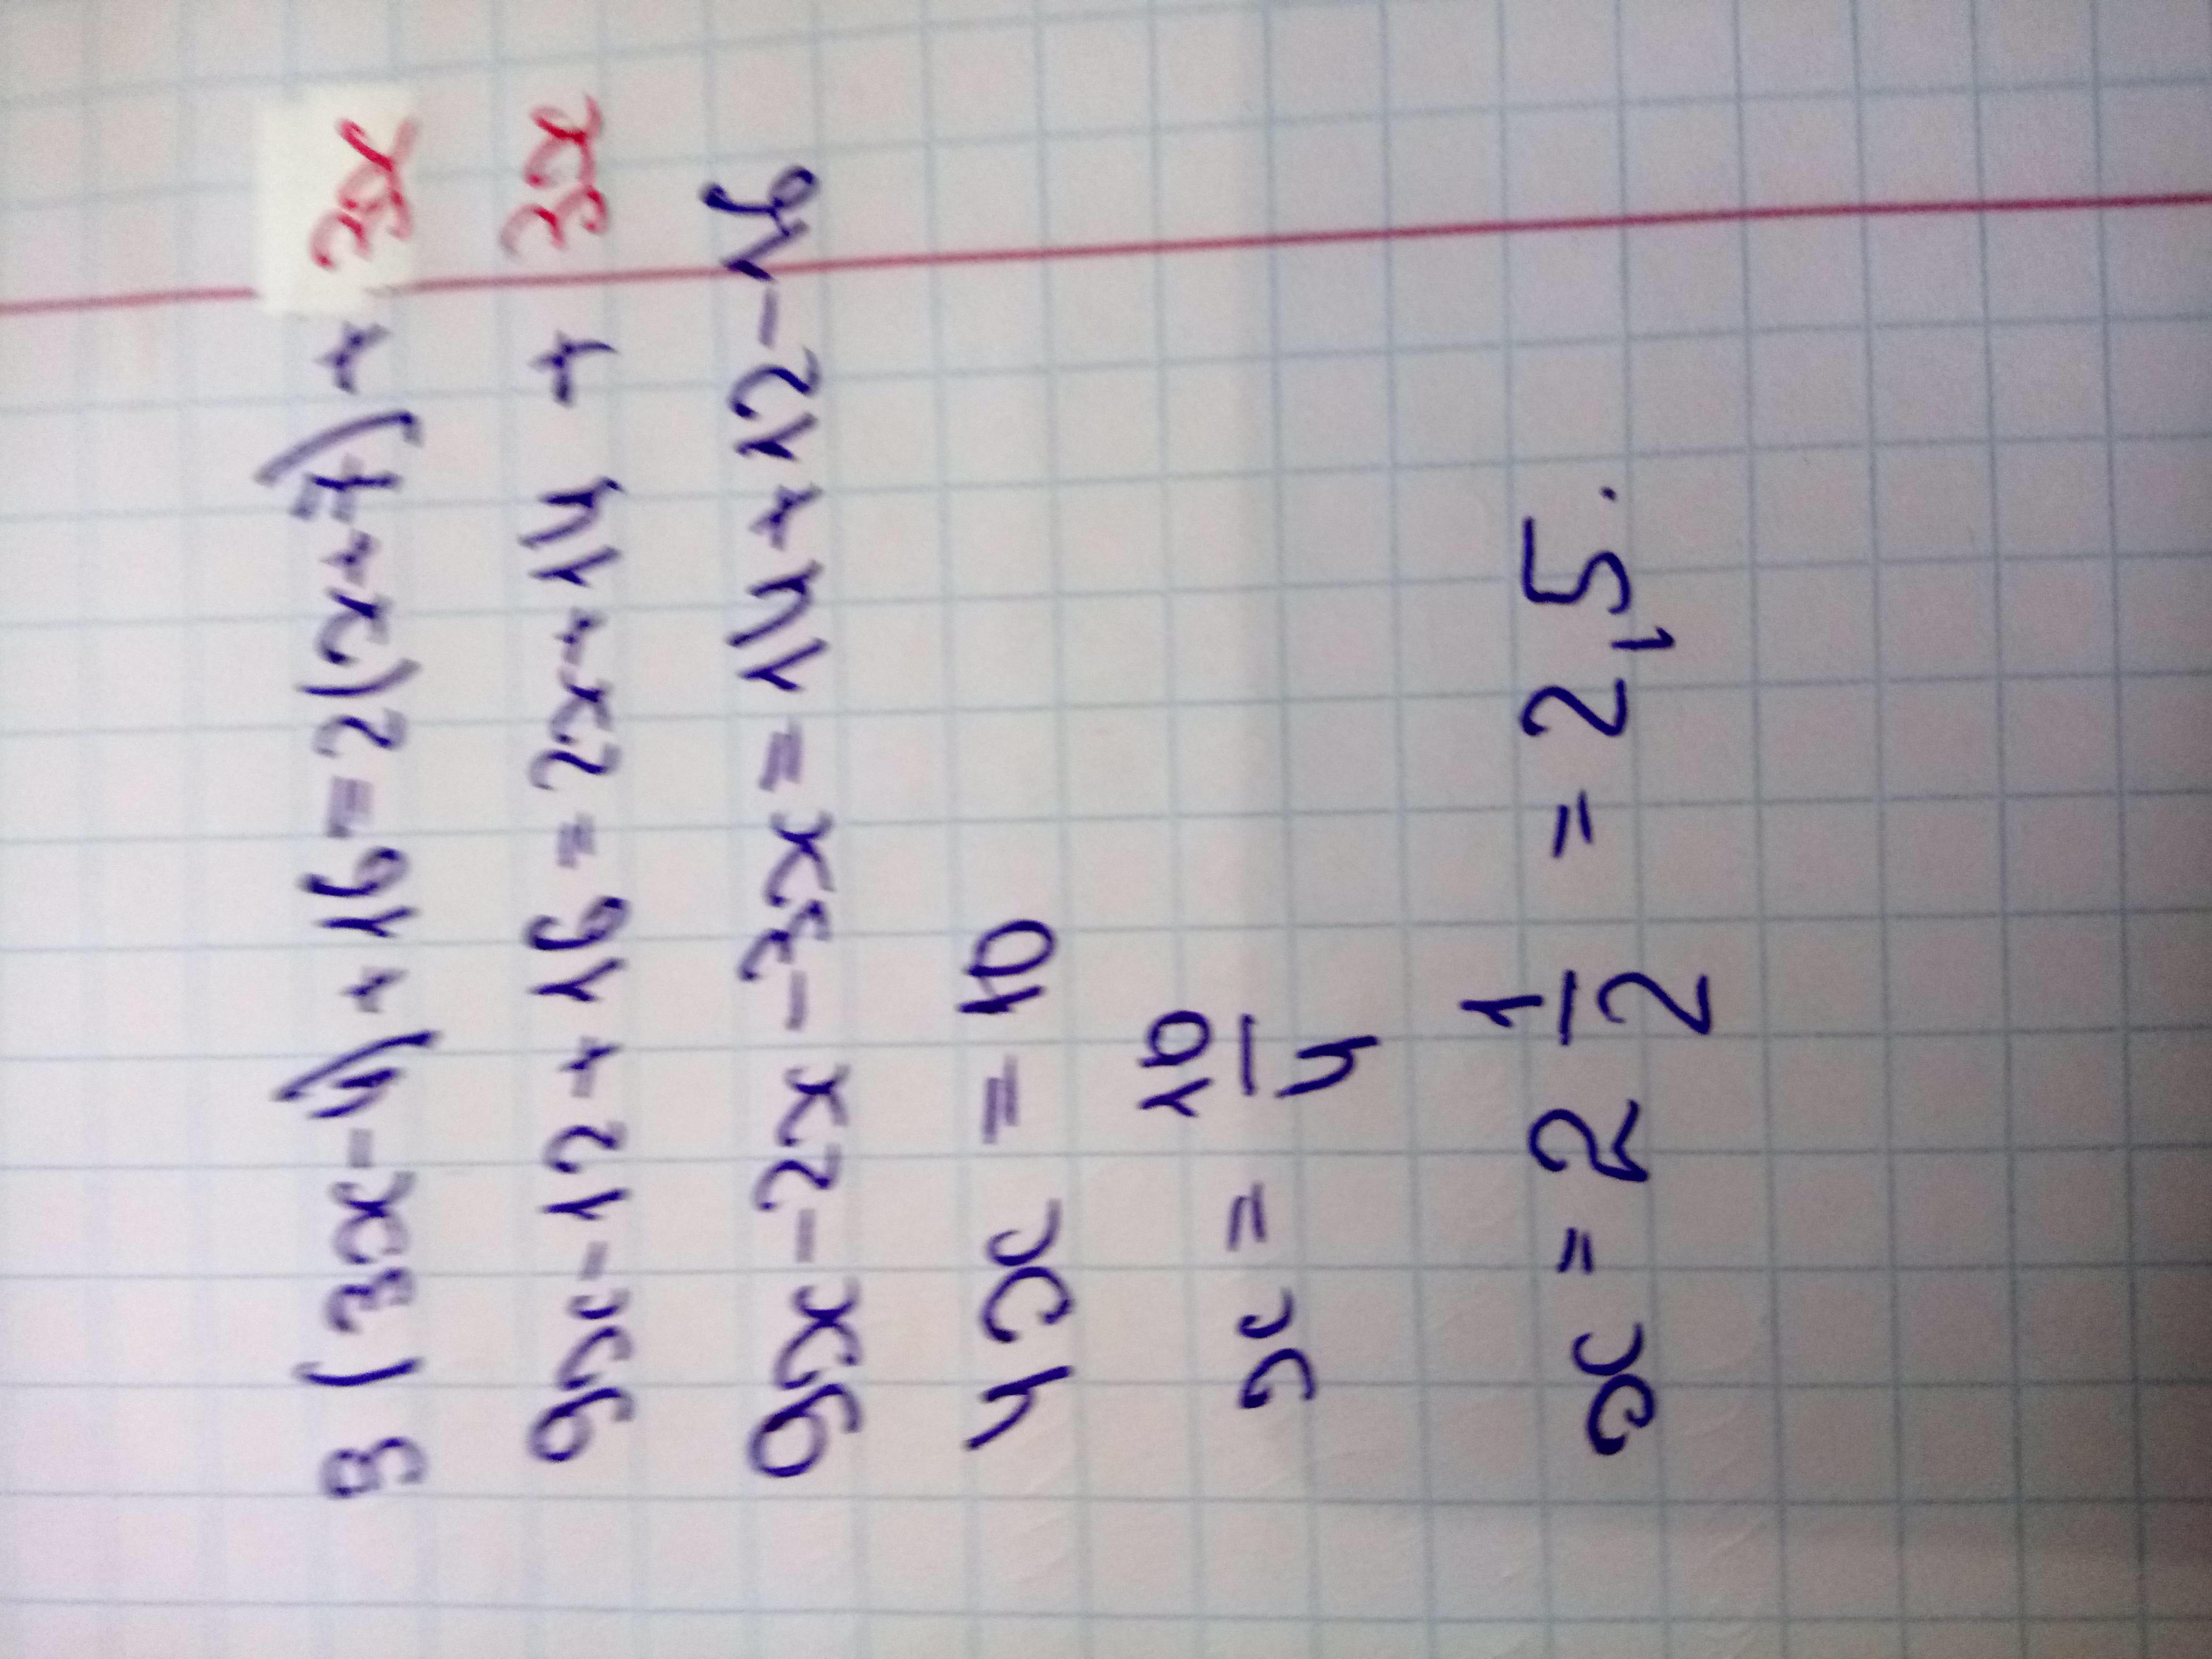 3(3x-4)+16=2(x+7)+3x
9x-12+16=2x+14+3x
9x-2x-3x=14+12-16
4x=10
x=10/4
x=2 1/2=2,5.